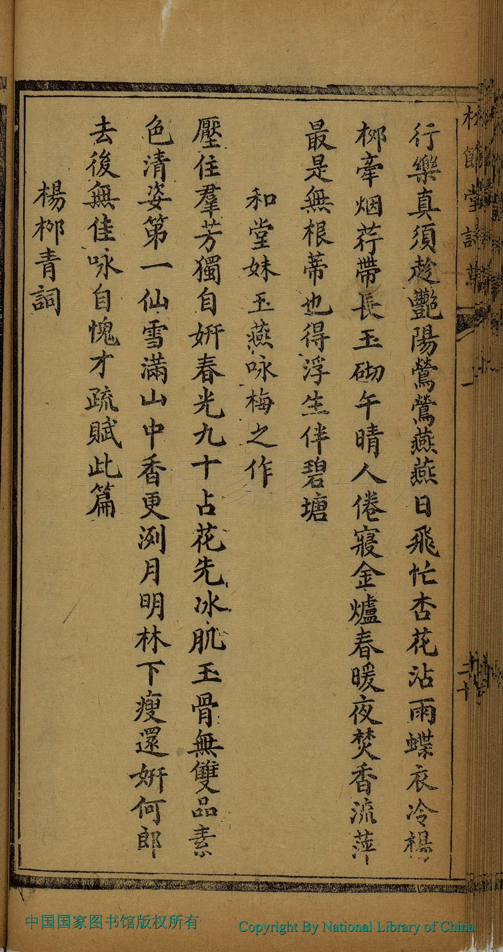 行樂真須趁艷陽鶯鶯燕燕日飛忙杏花沾雨蝶衣冷楊
柳牽烟荇帶長玉砌午晴人倦寢金爐春暖夜焚香流萍
最是無根蒂也得浮生伴碧塘
和堂妹玉燕咏梅之作
壓住羣芳獨自妍春光九十占花先冰肌玉骨無雙品素
色清姿第一仙雪滿山中香更冽月明林下瘦還妍何郎
去後無佳咏自愧才疏賦此篇
楊柳青詞
中国国家图书馆版权所有
Copyright By National Library of China